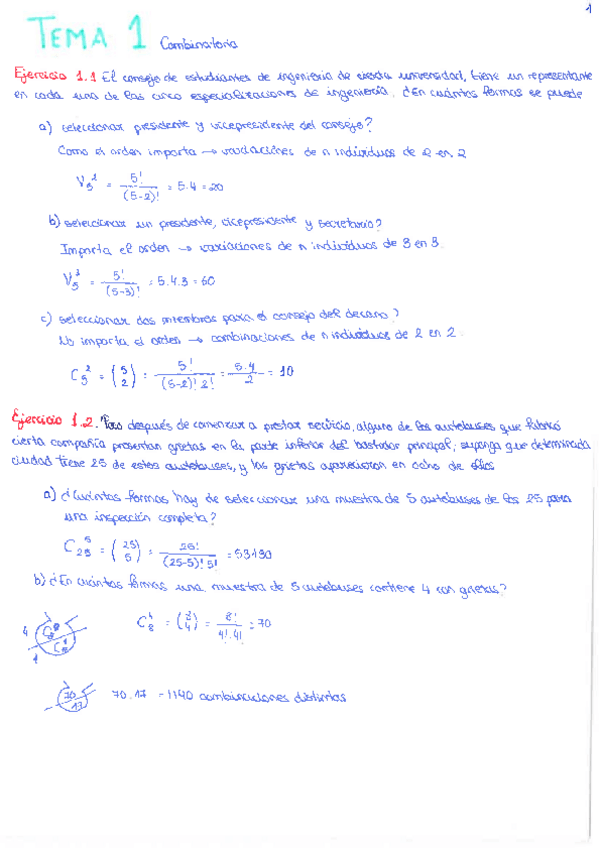 1
TEMA 1 Combinatoria
Ejercicio 1.1 El consejo de estudiantes de ingeniería de cierta universidad, tiene un representante
en cada una de las cinco especializaciones de ingeniería. ¿En cuántas formas se puede
a) seleccionar presidente y vicepresidente del consejo?
Como el orden importa → variaciones de n individuos de 2 en 2
V₅² = 5! / (5-2)! = 5.4 = 20
b) seleccionar un presidente, vicepresidente y secretario?
Importa el orden → variaciones de n individuos de 3 en 3.
V₅³ = 5! / (5-3)! = 5.4.3 = 60
c) seleccionar dos miembros para el consejo del decano?
No importa el orden → combinaciones de n individuos de 2 en 2.
C₅² = (5 2) = 5! / (5-2)! 2! = 5.4 / 2 = 10
Ejercicio 1.2. Poco después de comenzar a prestar servicio, alguno de los autobuses que fabricó
cierta compañía presentan grietas en la parte inferior del bastidor principal; suponga que determinada
ciudad tiene 25 de estos autobuses, y las grietas aparecieron en ocho de ellos
a) ¿Cuántas formas hay de seleccionar una muestra de 5 autobuses de los 25 para
una inspección completa?
C₂₅⁵ = (25 5) = 25! / (25-5)! 5! = 53130
b) ¿En cuántas formas una muestra de 5 autobuses contiene 4 con grietas?
4
1
C₈⁴ = (8 4) = 8! / 4! 4! = 70
70
17
70.17 = 1140 combinaciones distintas